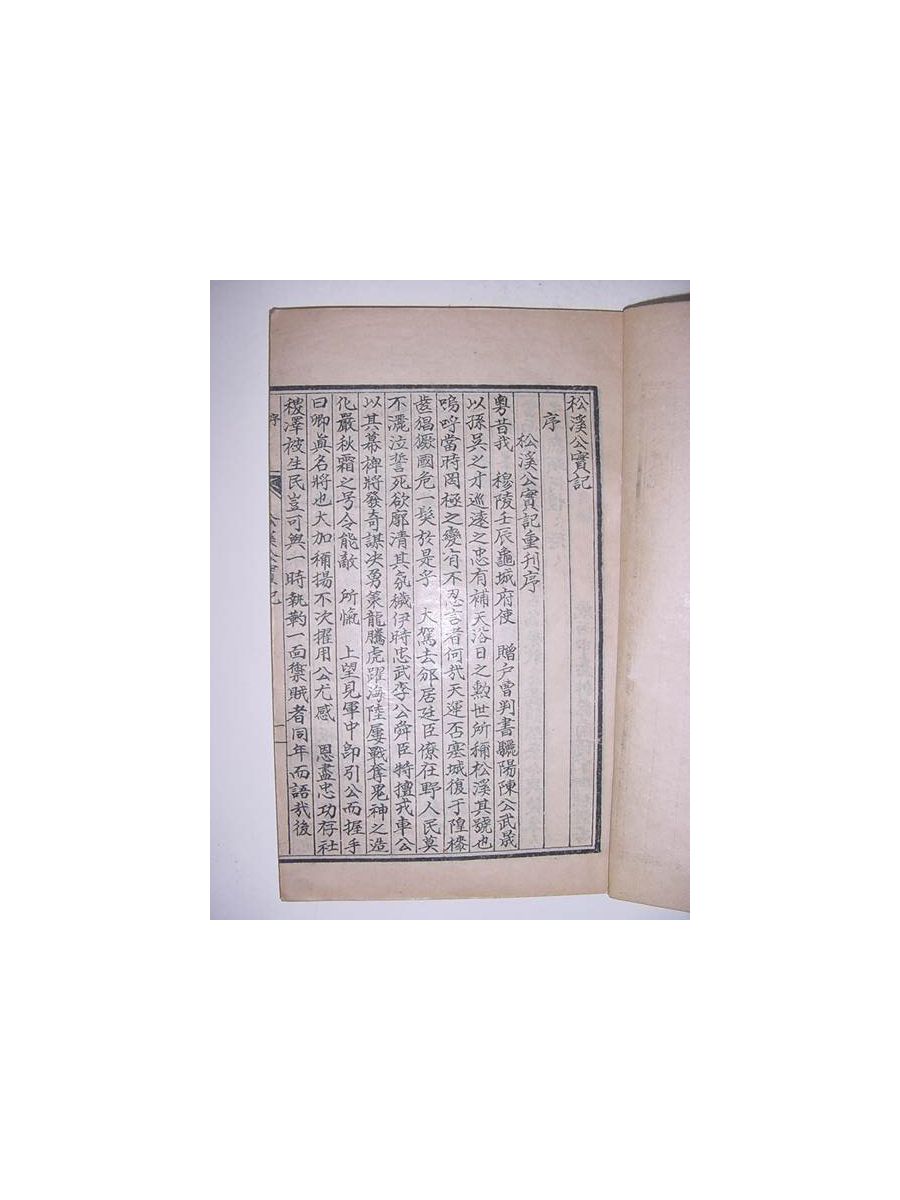 松溪公實記
序
松溪公實記重刊序
粵昔我 穆陵壬辰龜城府使 贈戶曹判書驪陽陳公武晟
以孫吳之才巡遠之忠有補天浴日之勲世所稱松溪其號也
嗚呼當時罔極之變有不忍言者何㢤天運否塞城復于隍
猖獗國危一髮於是乎 大駕去邠居廷臣僚在野人民莫
不灑泣誓死欲廓清其氛穢伊時忠武李公舜臣特擅戎車公
以其幕裨將發奇謀決勇策龍騰虎躍海陸屢戰奪鬼神之造
化嚴秋霜之号令能敵 所愾 上望見軍中卽引公而握手
曰卿眞名將也大加稱揚不次擢用公尤感 恩盡忠功存社
稷澤被生民豈可與一時執靮一面禦賊者同年而語㢤後
序